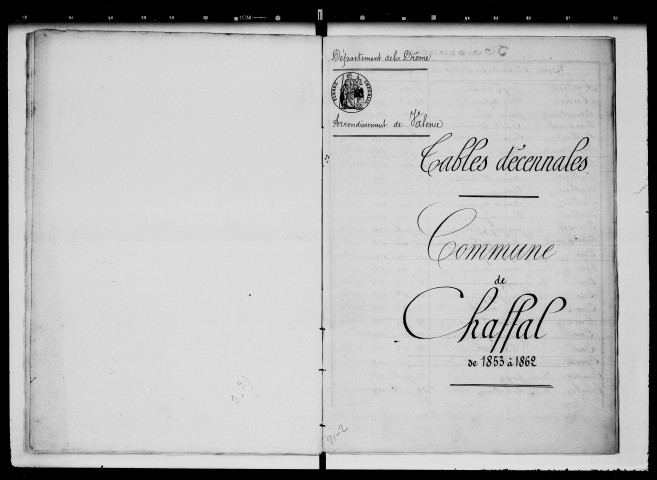 Département de la Drôme
Arrondissement de Valence
Tables décennales
Commune
de
Chaffal
de 1853 à 1862
21-2